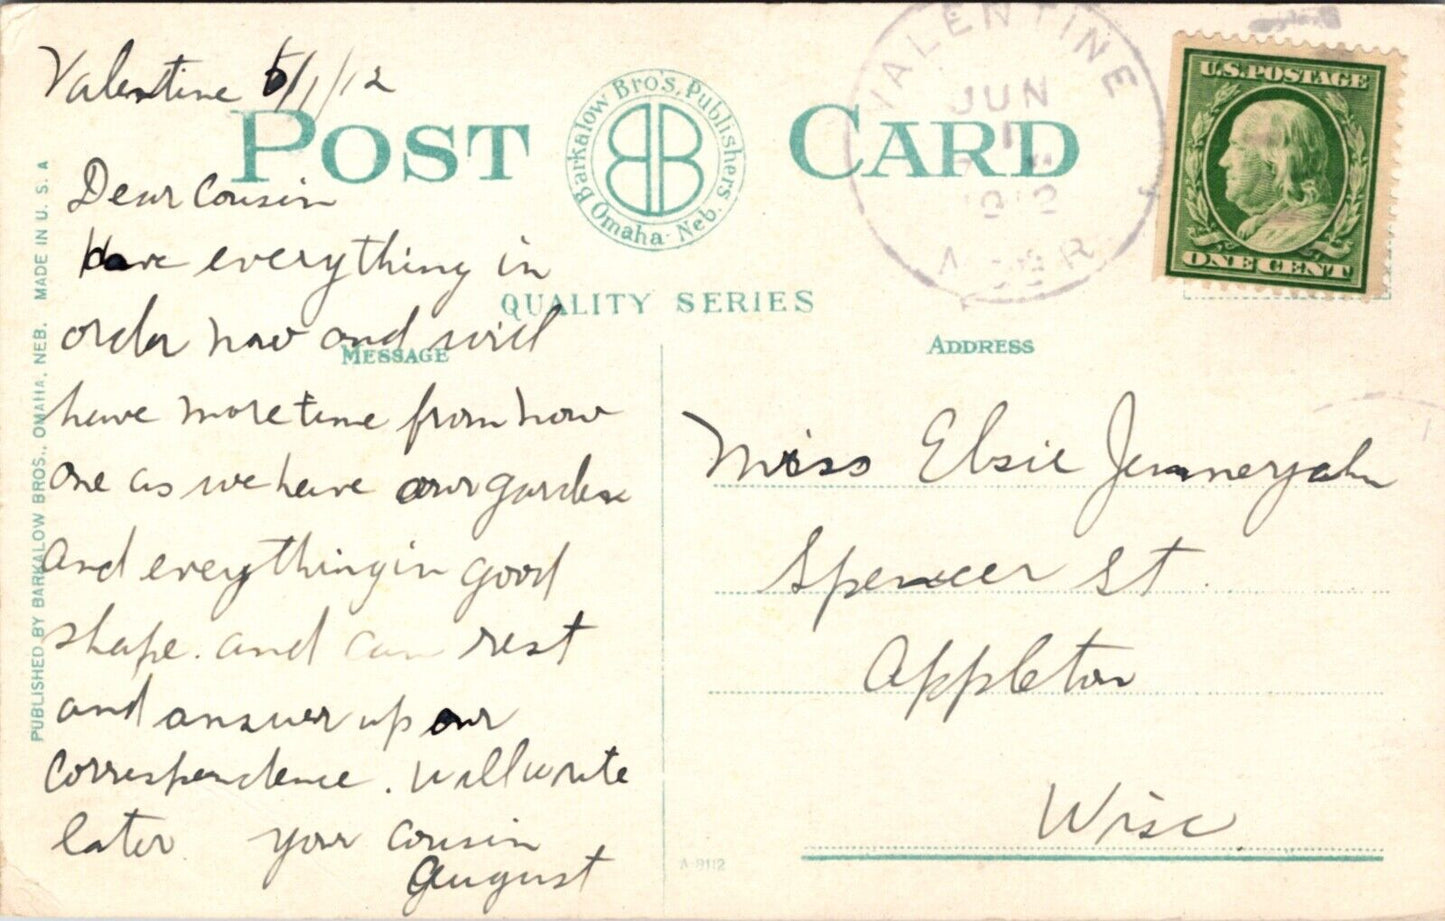 Valentine 6/1/12
POST CARD
Barkalow Bro's, Publishers
Omaha Neb.
QUALITY SERIES
VALENTINE
JUN
1
1912
NEBR
U.S. POSTAGE
ONE CENT
MESSAGE
ADDRESS
Dear Cousin
Have everything in
order now and will
have more time from now
one as we have our garden
and everything in good
shape. and can rest
and answer up our
correspendence. will write
later your cousin
August
Miss Elsie Jennerjahn
Spencer St.
Appleton
Wisc
PUBLISHED BY BARKALOW BROS., OMAHA, NEB. MADE IN U. S. A
A-9112